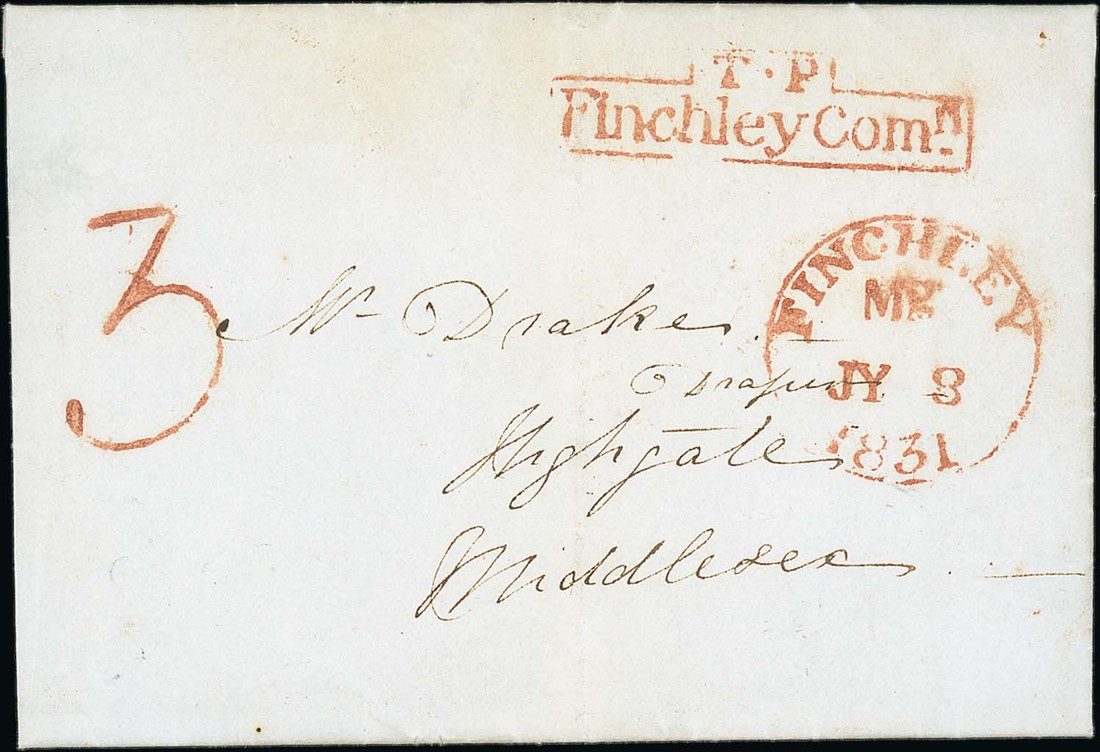 T.P
Finchley Comn.
3
FINCHLEY
JY 8
1831
Mr Drake
Draper
Highgate
Middlesex